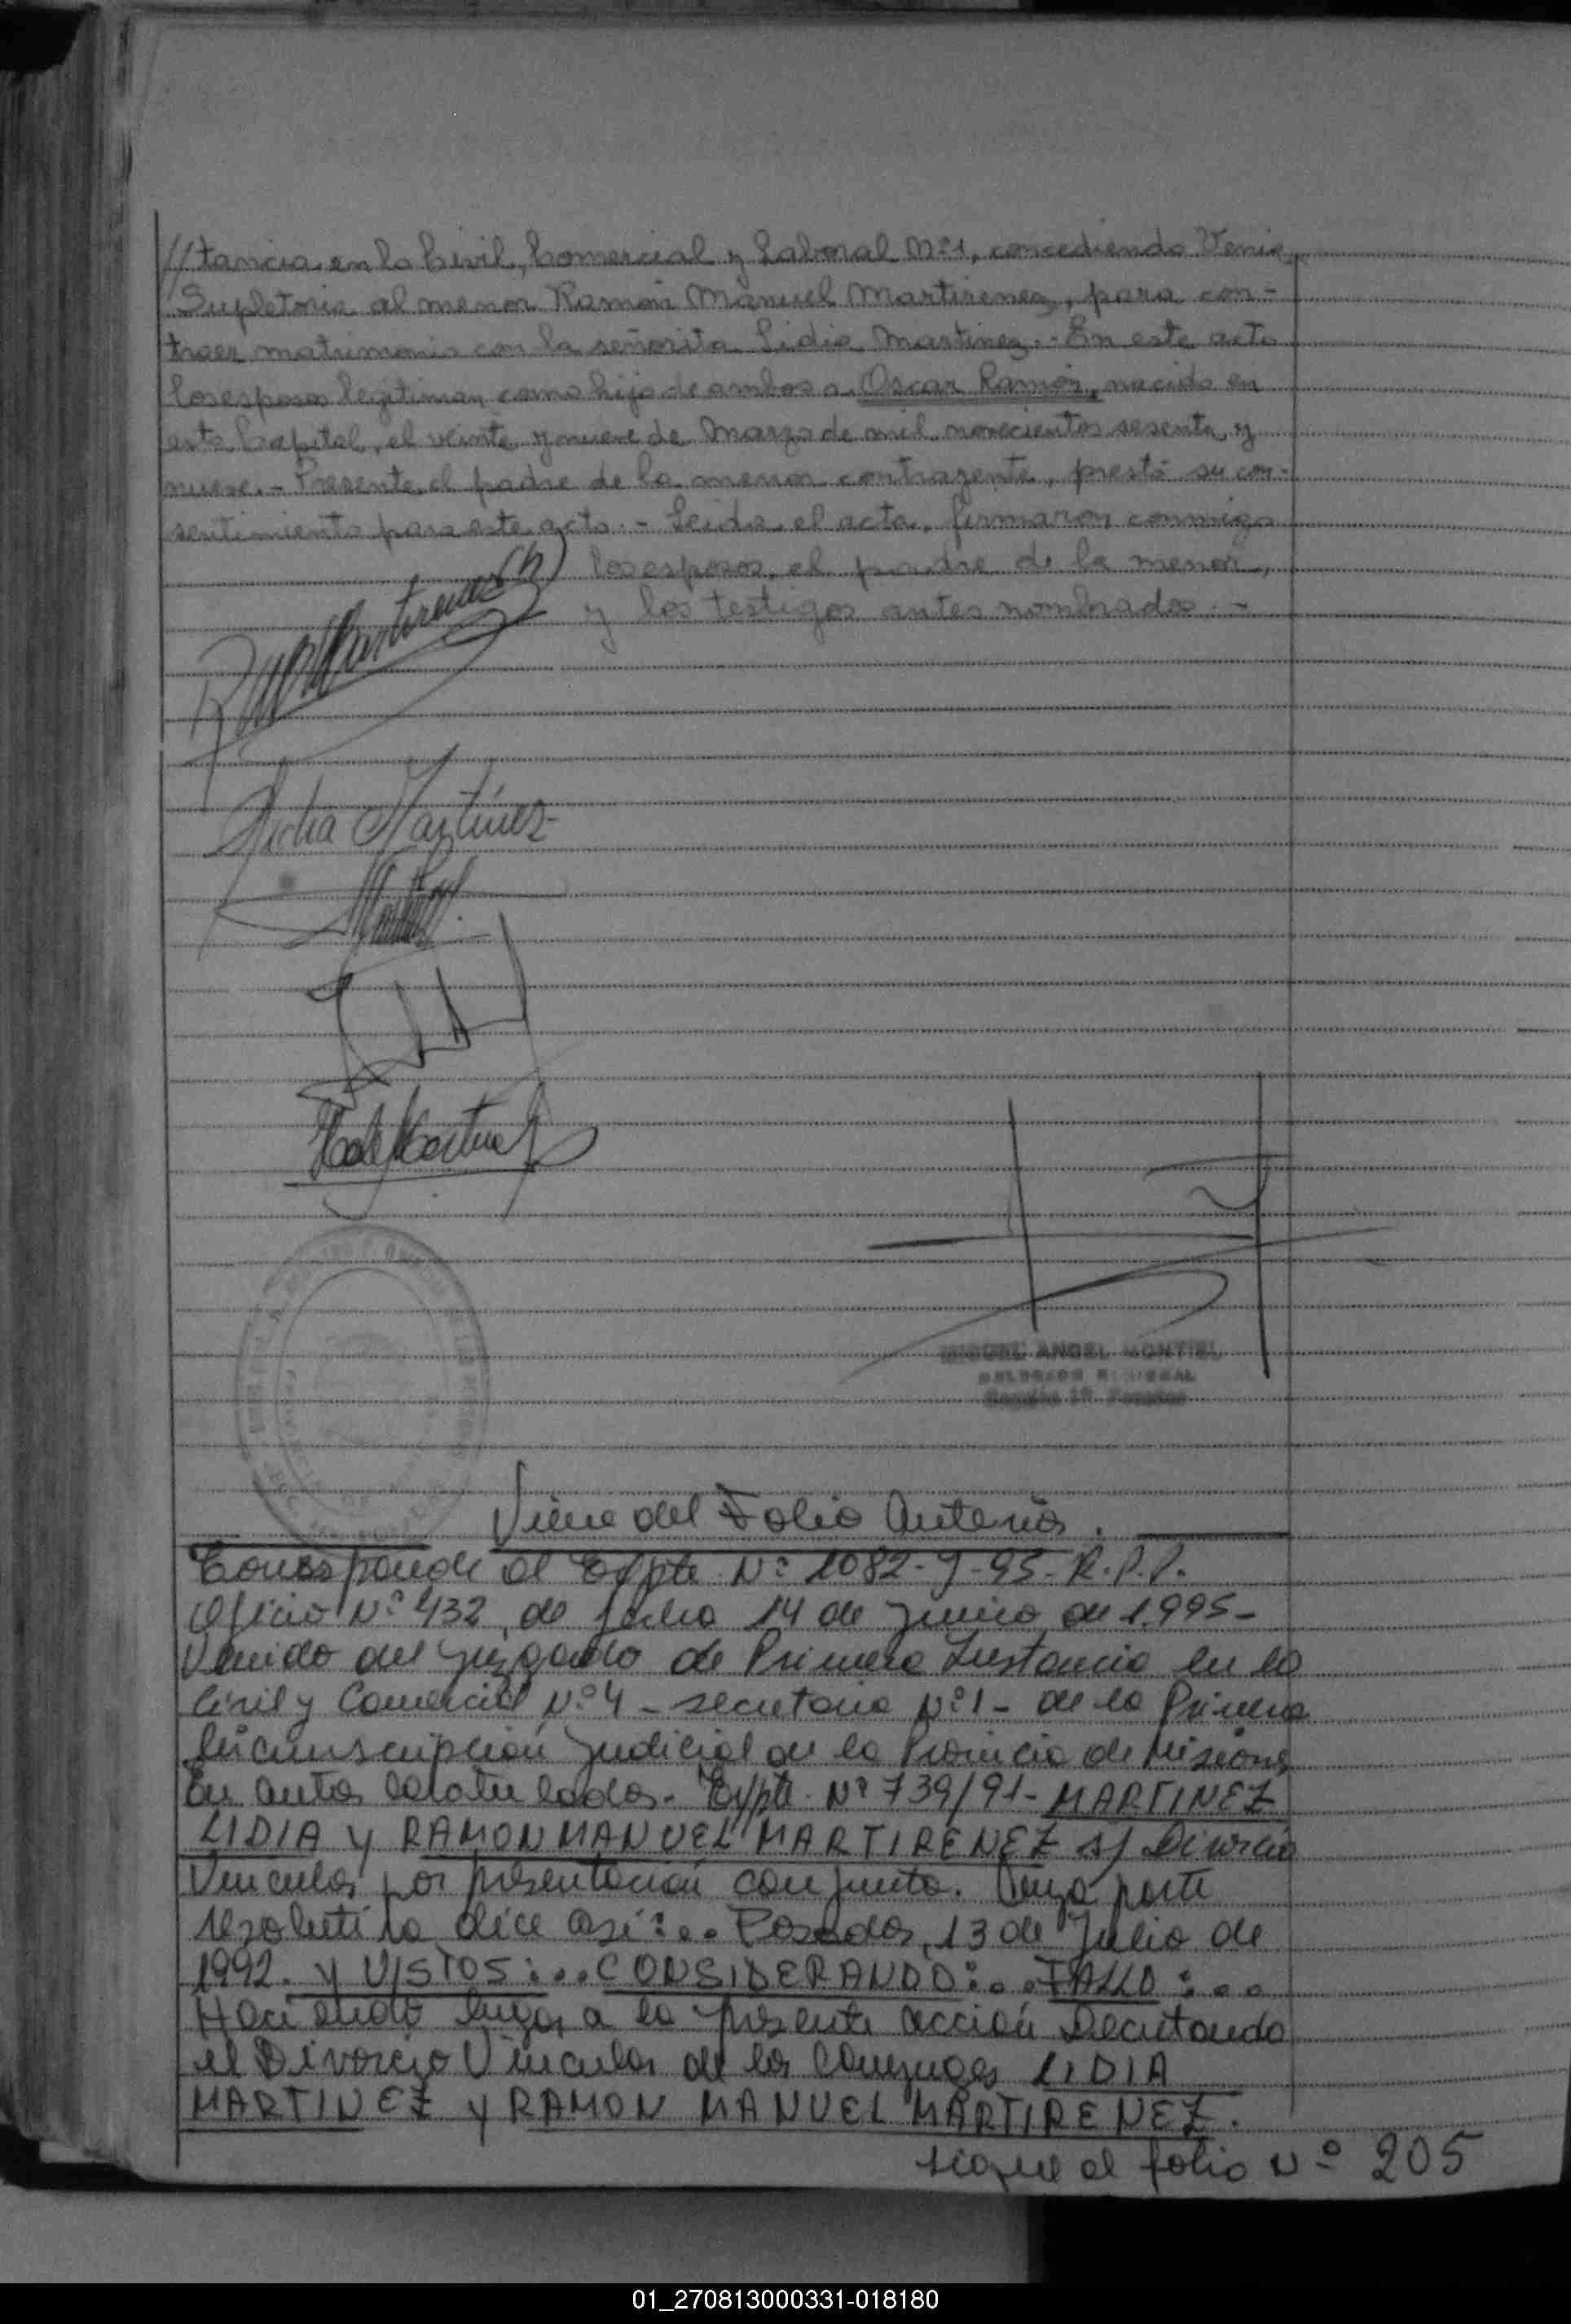 //tancia en lo Civil, Comercial y Laboral Nº1, concediendo Venia
Supletoria al menor Ramón Manuel Martirenez, para con-
traer matrimonio con la señorita Lidia Martinez.- En este acto
los esposos legitiman como hijo de ambos a Oscar Ramón, nacido en
esta Capital, el veinte y nueve de Marzo de mil novecientos sesenta y
nueve.- Presente el padre de la menor contrayente, prestó su con-
sentimiento para este acto.- Leida el acta, firmaron conmigo
los esposos, el padre de la menor,
y los testigos antes nombrados.-
Martirenez (h)
Lidia Martínez
MIGUEL ANGEL MONTIEL
DELEGADO REGIONAL
Viene del Folio Anterior.
Corresponde al Expte Nº 1082-J-95-R.P.P.
Oficio Nº 432, de fecha 14 de Junio de 1.995-
Venido del Juzgado de Primera Instancia en lo
Civil y Comercial Nº4 - secretaria Nº1 - de la Primera
Circunscripción Judicial de la Provincia de Misiones
En autos caratulados. Expte. Nº 739/91- MARTINEZ
LIDIA Y RAMON MANUEL MARTIRENEZ s/ Divorcio
Vincular por presentación conjunta. Cuya parte
resolutiva dice asi:.. Posadas, 13 de Julio de
1992. Y VISTOS:...CONSIDERANDO:..FALLO:..
Haciendo lugar a la presente acción Decretando
el Divorcio Vincular de los Conyuges LIDIA
MARTINEZ Y RAMON MANUEL MARTIRENEZ.
sigue al folio Nº 205
01_270813000331-018180